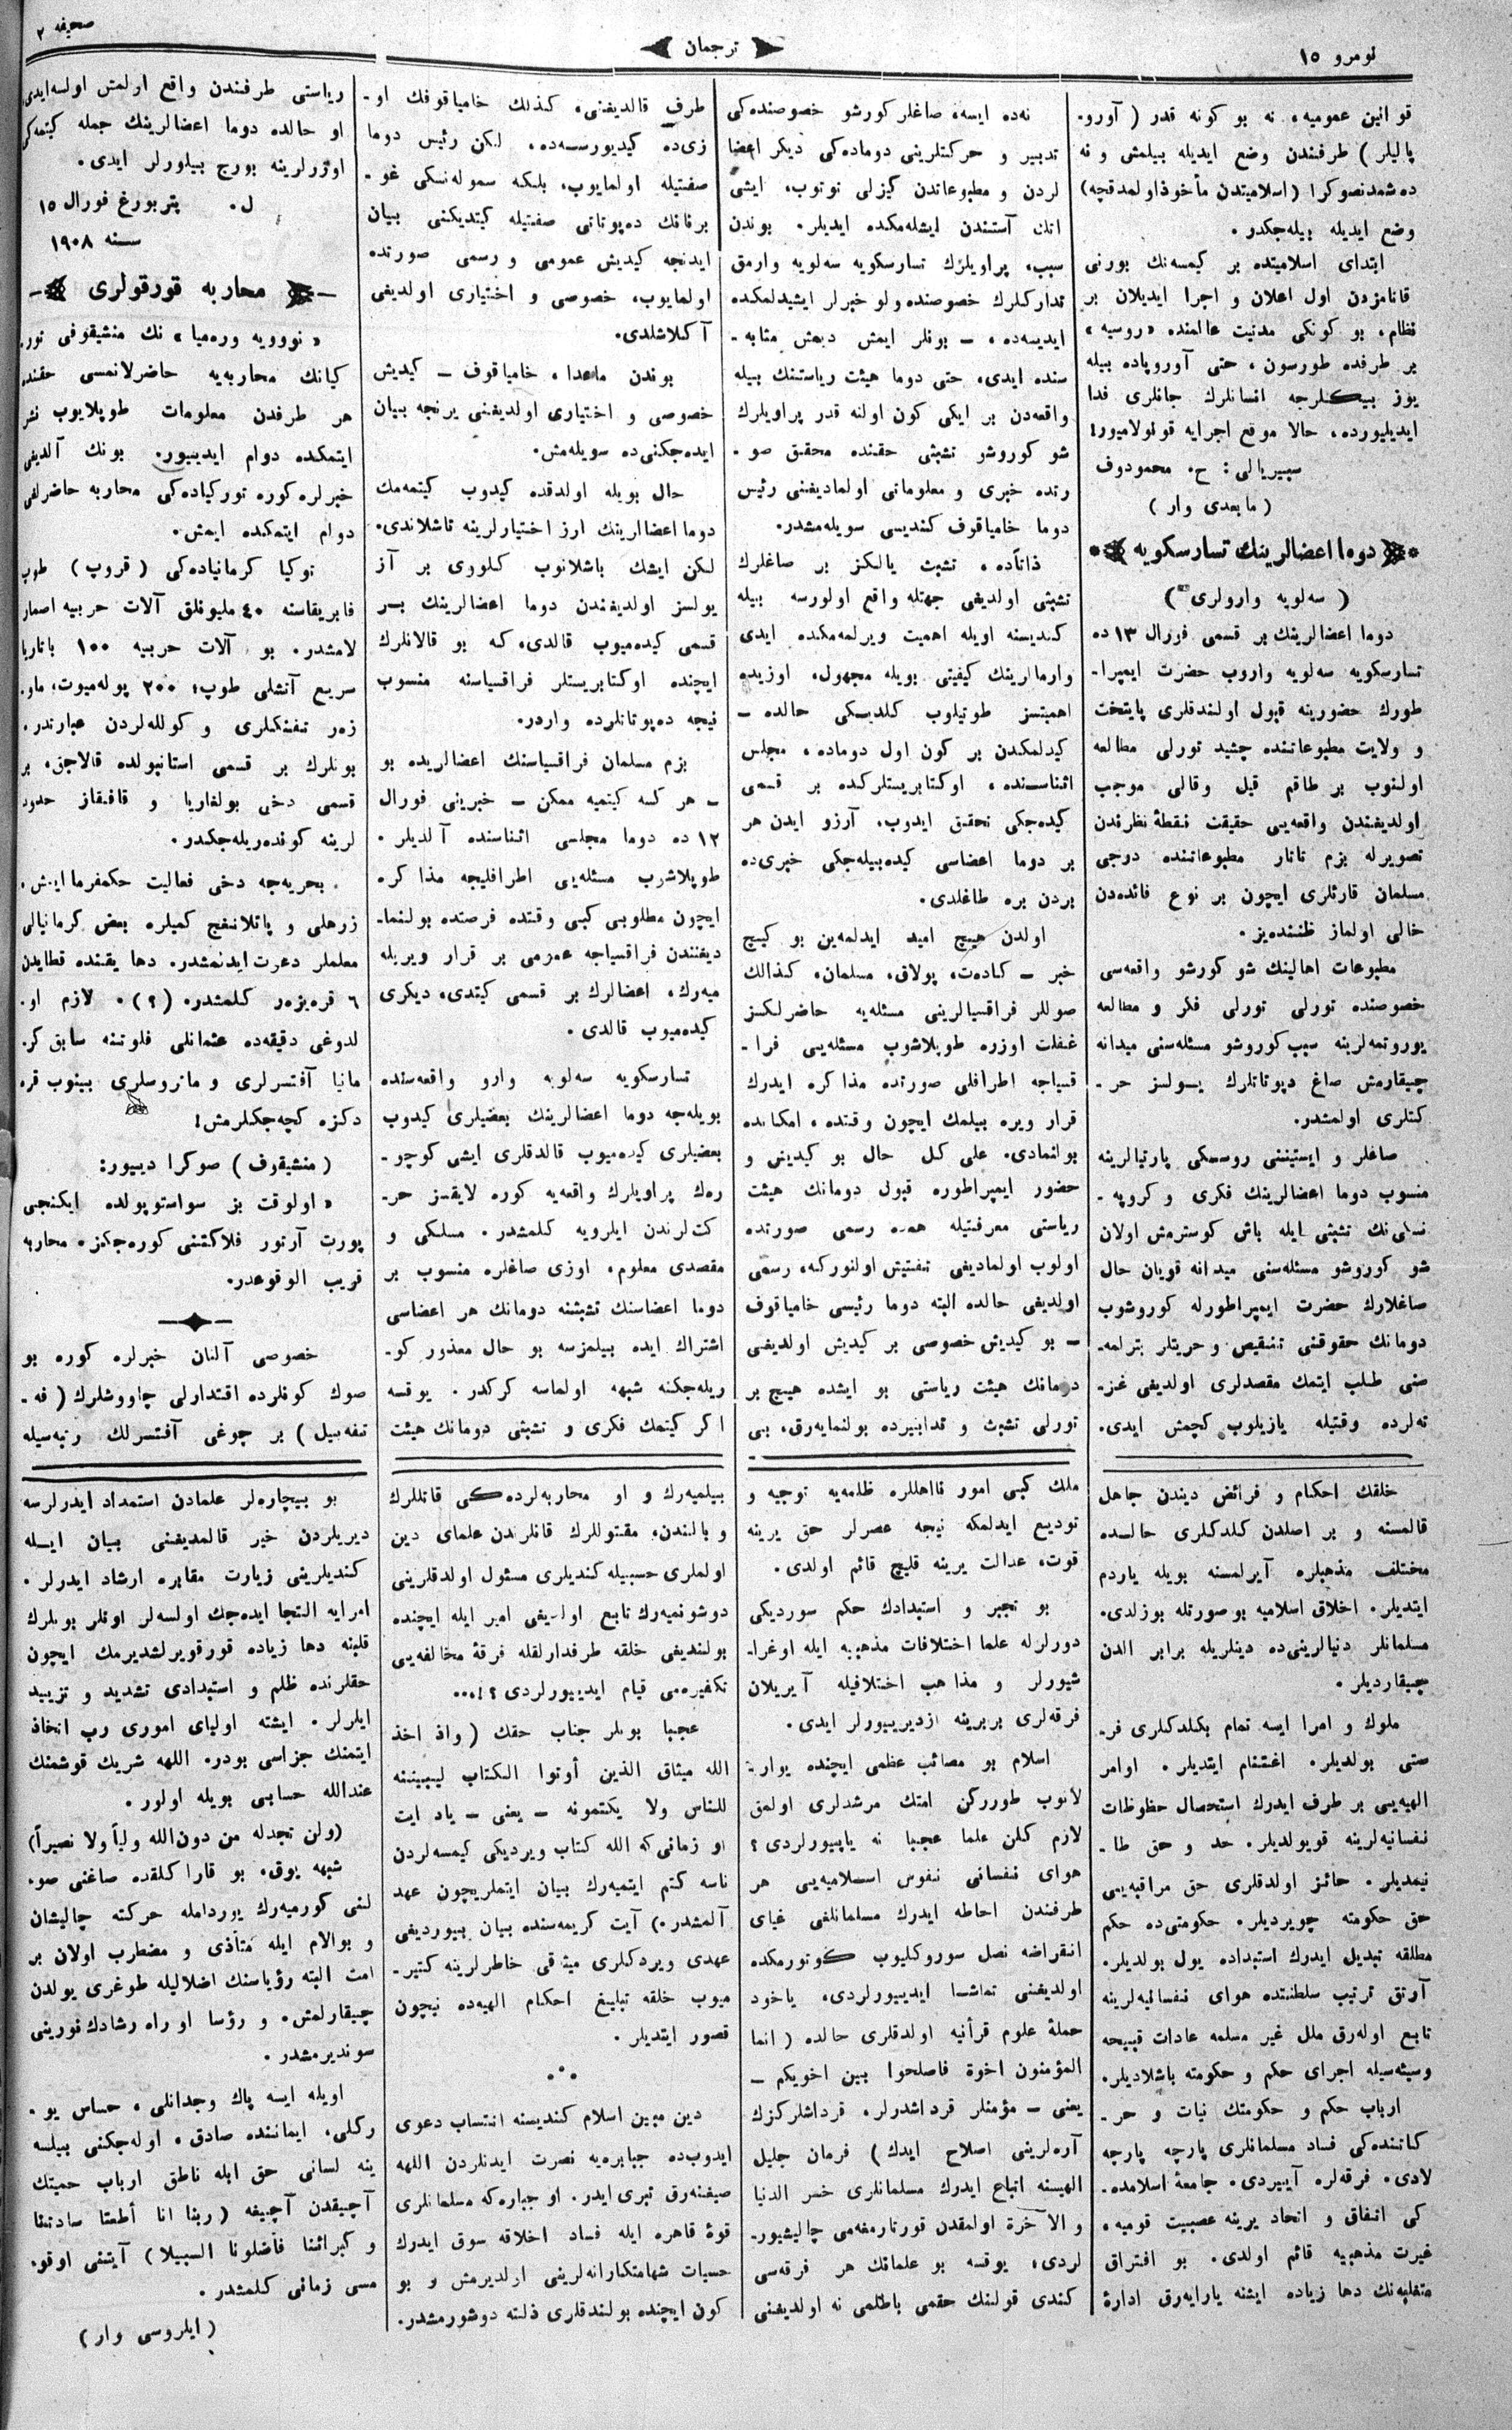 نومرو ١٥
ترجمان
صحيفه ٢
قوانين عموميه، نه بو كونه قدر (آورو-
پاليلر) طرفندن وضع ايديله بيلمش و نه
ده شمدنصوكرا (اسلاميتدن مأخوذ اولمدقچه)
وضع ايديله بيله‌جكدر.
ابتداى اسلاميتده بر كيمسه‌نك بورنى
قانامزدن اول اعلان و اجرا ايديلان بر
نظام، بو كونكى مدنيت عالمنده «روسيه»
بر طرفده طورسون، حتى آوروپاده بيله
يوز بيكلرجه انسانلرك جانلرى فدا
ايديليورده، حالا موقع اجرايه قونولاميور!
سيبيريالى: ح. محمودوف
(مابعدى وار)
دوما اعضالرينك تسارسكويه
(سه‌لويه وارولرى)
دوما اعضالرينك بر قسمى فورال ١٣ ده
تسارسكويه سه‌لويه واروب حضرت ايمپرا-
طورك حضورينه قبول اولندقلرى پايتخت
و ولايت مطبوعاتنده چشيد تورلى مطالعه
اولنوب بر طاقم قيل وقالى موجب
اولديغندن واقعه‌يى حقيقت نقطهٔ نظرندن
تصويرله بزم تاتار مطبوعاتنده درجى
مسلمان قارئلرى ايچون بر نوع فائده‌دن
خالى اولماز ظننده‌يز.
مطبوعات اهالينك شو كورشو واقعه‌سى
خصوصنده تورلى تورلى فكر و مطالعه
يوروتمه‌لرينه سبب كوروشو مسئله‌سنى ميدانه
چيقارمش صاغ دپوتاتلرك يولسز حر-
كتلرى اولمشدر.
صاغلر و ايستيننى روسسكى پارتيالرينه
منسوب دوما اعضالرينك فكرى و كروپه-
نسكى‌نك تشبثى ايله باش كوسترمش اولان
شو كوروشو مسئله‌سنى ميدانه قويان حال
صاغلارك حضرت ايمپراطورله كوروشوب
دومانك حقوقنى تنقيص و حريتلر بترلمه-
سنى طلب ايتمك مقصدلرى اولديغى غز-
ته‌لرده وقتيله يازيلوب كچمش ايدى.
نه‌ده ايسه، صاغلر كورشو خصوصنده‌كى
تدبير و حركتلرينى دوماده‌كى ديكر اعضا
لردن و مطبوعاتدن كيزلى توتوب، ايشى
انك آستندن ايشله‌مكده ايديلر. بوندن
سبب، پراويلرك تسارسكويه سه‌لويه وارمق
تداركلرك خصوصنده ولو خبرلر ايشيدلمكده
ايديسه‌ده، — بونلر ايمش ديمش مثابه-
سنده ايدى، حتى دوما هيئت رياستنك بيله
واقعه‌دن بر ايكى كون اولنه قدر پراويلرك
شو كوروشو تشبثى حقنده محقق صو-
رتده خبرى و معلوماتى اولماديغنى رئيس
دوما خامياقوف كنديسى سويله‌مشدر.
ذاتاًده، تشبث يالكز بر صاغلرك
تشبثى اولديغى جهتله واقع اولورسه بيله
كنديسنه اويله اهميت ويرلمه‌مكده ايدى
وارمالرينك كيفيتى بويله مجهول، اوزيده
اهميتسز طوتيلوب كلديكى حالده —
كيدلمكدن بر كون اول دوماده، مجلس
اثناسنده، اوكتابريستلركده بر قسمى
كيده‌جكى تحقق ايدوب، آرزو ايدن هر
بر دوما اعضاسى كيده‌بيله‌جكى خبرى‌ده
بردن بره طاغلدى.
اولدن هيچ اميد ايدلمه‌ين بو كيچ
خبر — كادەت، پولاق، مسلمان، كذالك
صوللر فراقسيالرينى مسئله‌يه حاضرلكسز
غفلت اوزره طوپلاشوب مسئله‌يى فرا-
قسياجه اطرافلى صورتده مذاكره ايدرك
قرار ويره بيلمك ايچون وقتده، امكانده
بولنمادى. على كل حال بو كيديش و
حضور ايمپراطوره قبول دومانك هيئت
رياستى معرفتيله همده رسمى صورتده
اولوب اولماديغى تفتيش اولنوركه، رسمى
اولديغى حالده البته دوما رئيسى خامياقوف
— بو كيديش خصوصى بر كيديش اولديغنى
دومانك هيئت رياستى بو ايشده هيچ بر
تورلى تشبث و تدابيرده بولنمايه‌رق، بى
طرف قالديغنى، كذلك خامياقوفك او-
زى‌ده كيديورسه‌ده، ليكن رئيس دوما
صفتيله اولمايوب، بلكه سموله‌نسكى غو-
برناتك ده‌پوتاتى صفتيله كيتديكنى بيان
ايدنجه كيديش عمومى و رسمى صورتده
اولمايوب، خصوصى و اختيارى اولديغى
آكلاشلدى.
بوندن ماعدا، خامياقوف — كيديش
خصوصى و اختيارى اولديغنى يرنجه بيان
ايده‌جكنى‌ده سويله‌مش.
حال بويله اولدقده كيدوب كيتمه‌مك
دوما اعضالرينك ارز اختيارلرينه تاشلاندى.
لكن ايشك باشلانوب كلوورى بر آز
يولسز اولديغندن دوما اعضالرينك بر
قسمى كيده‌ميوب قالدى، كه بو قالانلرك
ايچنده اوكتابريستلر فراقسياسنه منسوب
نيجه ده‌پوتاتلرده واردر.
بزم مسلمان فراقسياسنك اعضالريده بو
— هر كسه كيتميه ممكن — خبرينى فورال
١٢ ده دوما مجلسى اثناسنده آلديلر.
طوپلاشرب مسئله‌يى اطرافليجه مذاكره
ايچون مطلوبى كبى وقتده فرصتده بولنما-
ديغندن فراقسياجه عمومى بر قرار ويريله
ميه‌رك، اعضالرك بر قسمى كيتدى، ديكرى
كيده‌ميوب قالدى.
تسارسكويه سه‌لويه وارو واقعه‌سنده
بويله‌جه دوما اعضالرينك بعضيلرى كيدوب
بعضيلرى كيده‌ميوب قالدقلرى ايشى كوچو-
ره‌ك پراويلرك واقعه‌يه كوره لايقسز حر-
كت لرندن ايلرويه كلمشدر. مسلكى و
مقصدى معلوم، اوزى صاغلره منسوب بر
دوما اعضاسنك تشبثنه دومانك هر اعضاسى
اشتراك ايده بيلمزسه بو حال معذور كو-
ريله‌جكنه شبهه اولماسه كركدر. يوقسه
اكر كيتمك فكرى و تشبثى دومانك هيئت
رياستى طرفندن واقع ارلمش اولسه‌ايدى
او حالده دوما اعضالرينك جمله كيتمه‌كى
اوزرلرينه بورچ بيلورلر ايدى.
ل. پتربورغ فورال ١٥
سنه ١٩٠٨
محاربه قورقولرى
«نوويه وره‌ميا» نك منشيقوفى تور-
كيانك محاربه‌يه حاضرلانمسى حقنده
هر طرفدن معلومات طوپلايوب نشر
ايتمكده دوام ايدييور. بونك آلديغى
خبرلره كوره توركياده‌كى محاربه حاضرلغى
دوام ايتمكده ايمش.
توكيا كرمانياده‌كى (قروپ) طوپ
فابريقاسنه ٤٠ مليونلق آلات حربيه اسمار
لامشدر. بو آلات حربيه ١٠٠ باتاريا
سريع آتشلى طوپ؛ ٢٠٠ پوله‌ميوت، ماو-
زەر تفنكلرى و كولله‌لردن عبارتدر.
بونلرك بر قسمى استانبولده قالاجق، بر
قسمى دخى بولغاريا و قافقاز حدود
لرينه كوندەريله‌جكدر.
بحريه‌جه دخى فعاليت حكمفرما ايمش.
زرهلى و پاتلانغچ كميلره بعض كرمانيالى
معلملر دعوت ايدنمشدر. دها يقنده قطايدن
٦ قره‌يزەر كلمشدر. (؟). لازم او-
لدوغى دقيقه‌ده عثمانلى فلوتنه سابق كر-
مانيا آفتسرلرى و ماتروسلرى بينوب قره
دكزه كچه‌جكلرمش!
(منشيقوف) صوكرا دييور:
«اولوقت بز سواستوپولده ايكنجى
پورت آرتور فلاكتنى كوره‌جكز. محاربه
قريب الوقوعدر.
خصوصى آلنان خبرلره كوره بو
صوك كونلرده اقتدارلى چاووشلرك (فه-
تفه‌بيل) بر چوغى آفتسرلك رتبه‌سيله
خلقك احكام و فرائض ديندن جاهل
قالمسنه و بر اصلدن كلدكلرى حالده
مختلف مذهبلره آيرلمسنه بويله ياردم
ايتديلر. اخلاق اسلاميه بو صورتله بوزلدى.
مسلمانلر دنيالرينى‌ده دينلريله برابر الدن
چيقارديلر.
ملوك و امرا ايسه تمام بكلدكلرى فر-
صتى بولديلر. اغتنام ايتديلر. اوامر
الهيه‌يى بر طرف ايدرك استحصال حظوظات
نفسانيه‌لرينه قويولديلر. حد و حق طا-
نيمديلر. حائز اولدقلرى حق مراقبه‌يى
حق حكومته چويرديلر. حكومتى‌ده حكم
مطلقه تبديل ايدرك استبداده يول بولديلر.
آرتق ترتيب سلطنتده هواى نفسانيه‌لرينه
تابع اوله‌رق ملل غير مسلمه عادات قبيحه
وسيئه‌سيله اجراى حكم و حكومته باشلاديلر.
ارباب حكم و حكومتك نيات و حر-
كاتنده‌كى فساد مسلمانلرى پارچه پارچه
لادى. فرقه‌لره آييردى. جامعهٔ اسلامده-
كى اتفاق و اتحاد يرينه عصبيت قوميه،
غيرت مذهبيه قائم اولدى. بو افتراق
متغلبه‌نك دها زياده ايشنه يارايه‌رق ادارهٔ
ملك كبى امور نااهللره ظلمه‌يه توجيه و
توديع ايدلمكه نيجه عصرلر حق يرينه
قوت، عدالت يرينه قليچ قائم اولدى.
بو تجبر و استبدادك حكم سورديكى
دورلرله علما اختلافات مذهبيه ايله اوغرا-
شيورلر و مذاهب اختلافيله آيريلان
فرقه‌لرى بربرينه ازديرييورلر ايدى.
اسلام بو مصائب عظمى ايچنده يوار-
لانوب طورركن امتك مرشدلرى اولمق
لازم كلن علما عجبا نه ياپيورلردى؟
هواى نفسانى نفوس اسلاميه‌يى هر
طرفندن احاطه ايدرك مسلمانلغى غياى
انقراضه نصل سوروكليوب كوتورمكده
اولديغنى تماشا ايدييورلردى، ياخود
حملهٔ علوم قرأنيه اولدقلرى حالده (انما
المؤمنون اخوة فاصلحوا بين اخويكم —
يعنى — مؤمنلر قرداشدرلر. قرداشلركزك
آره‌لرينى اصلاح ايدك) فرمان جليل
الهيسنه اتباع ايدرك مسلمانلرى خسر الدنيا
و الآخرة اولمقدن قورتارمغه‌مى چاليشيور-
لردى؛ يوقسه بو علمانك هر فرقه‌سى
كندى قولننك حقمى باطلمى نه اولديغنى
بيلميه‌رك و او محاربه‌لرده‌كى قاتللرك
و بالندن، مقتوللرك قانلرندن علماى دين
اولملرى حسبيله كنديلرى مسئول اولدقلرينى
دوشونميه‌رك تابع اولديغى امير ايله ايچنده
بولنديغى خلقه طرفدارلقله فرقهٔ مخالفه‌يى
تكفيره‌مى قيام ايدييورلردى؟!...
عجبا بونلر جناب حقك (واذ اخذ
الله ميثاق الذين أوتوا الكتاب ليبيننه
للناس ولا يكتمونه — يعنى — ياد ايت
او زمانى كه الله كتاب ويرديكى كيمسه‌لردن
ناسه كتم ايتميه‌رك بيان ايتملريچون عهد
آلمشدر.) آيت كريمه‌سنده بيان بيورديغى
عهدى ويردكلرى ميثاقى خاطرلرينه كتير-
ميوب خلقه تبليغ احكام الهيه‌ده نيچون
قصور ايتديلر.
دين مبين اسلام كنديسنه انتساب دعوى
ايدوب‌ده جبابره‌يه نصرت ايدنلردن اللهه
صيغنه‌رق تبرى ايدر. او جبابره‌كه مسلمانلرى
قوهٔ قاهره ايله فساد اخلاقه سوق ايدرك
حسيات شهامتكارانه‌لرينى ارلديرمش و بو
كون ايچنده بولندقلرى ذلته دوشورمشدر.
بو بيچاره‌لر علمادن استمداد ايدرلرسه
ديريلردن خير قالمديغنى بيان ايله
كنديلرينى زيارت مقابره ارشاد ايدرلر.
امرايه التجا ايده‌جك اولسه‌لر اونلر بونلرك
قلبنه دها زياده قورقويرلشديرمك ايچون
حقلرنده ظلم و استبدادى تشديد و تزييد
ايلرلر. ايشته اولياى امورى رب اتخاذ
ايتمنك جزاسى بودر. اللهه شريك قوشمنك
عندالله حسابى بويله اولور.
(ولن تجدله من دون‌الله ولياً ولا نصيراً)
شبهه يوق، بو قارا كلقده صاغنى صو-
لنى كورميه‌رك يوردامله حركته چاليشان
و بوالام ايله متأذى و مضطرب اولان بر
امت البته رؤياسنك اضلاليله طوغرى يولدن
چيقارلمش. و رؤسا او راه رشادك نورينى
سونديرمشدر.
اويله ايسه پاك وجدانلى، حساس يو-
ركلى، ايماننده صادق، اوله‌جكنى بيلسه
ينه لسانى حق ايله ناطق ارباب حميتك
آچيقدن آچيغه (ربنا انا أطعنا سادتنا
و كبرائنا فأضلونا السبيلا) آيتنى اوقو-
مسى زمانى كلمشدر.
(ايلروسى وار)